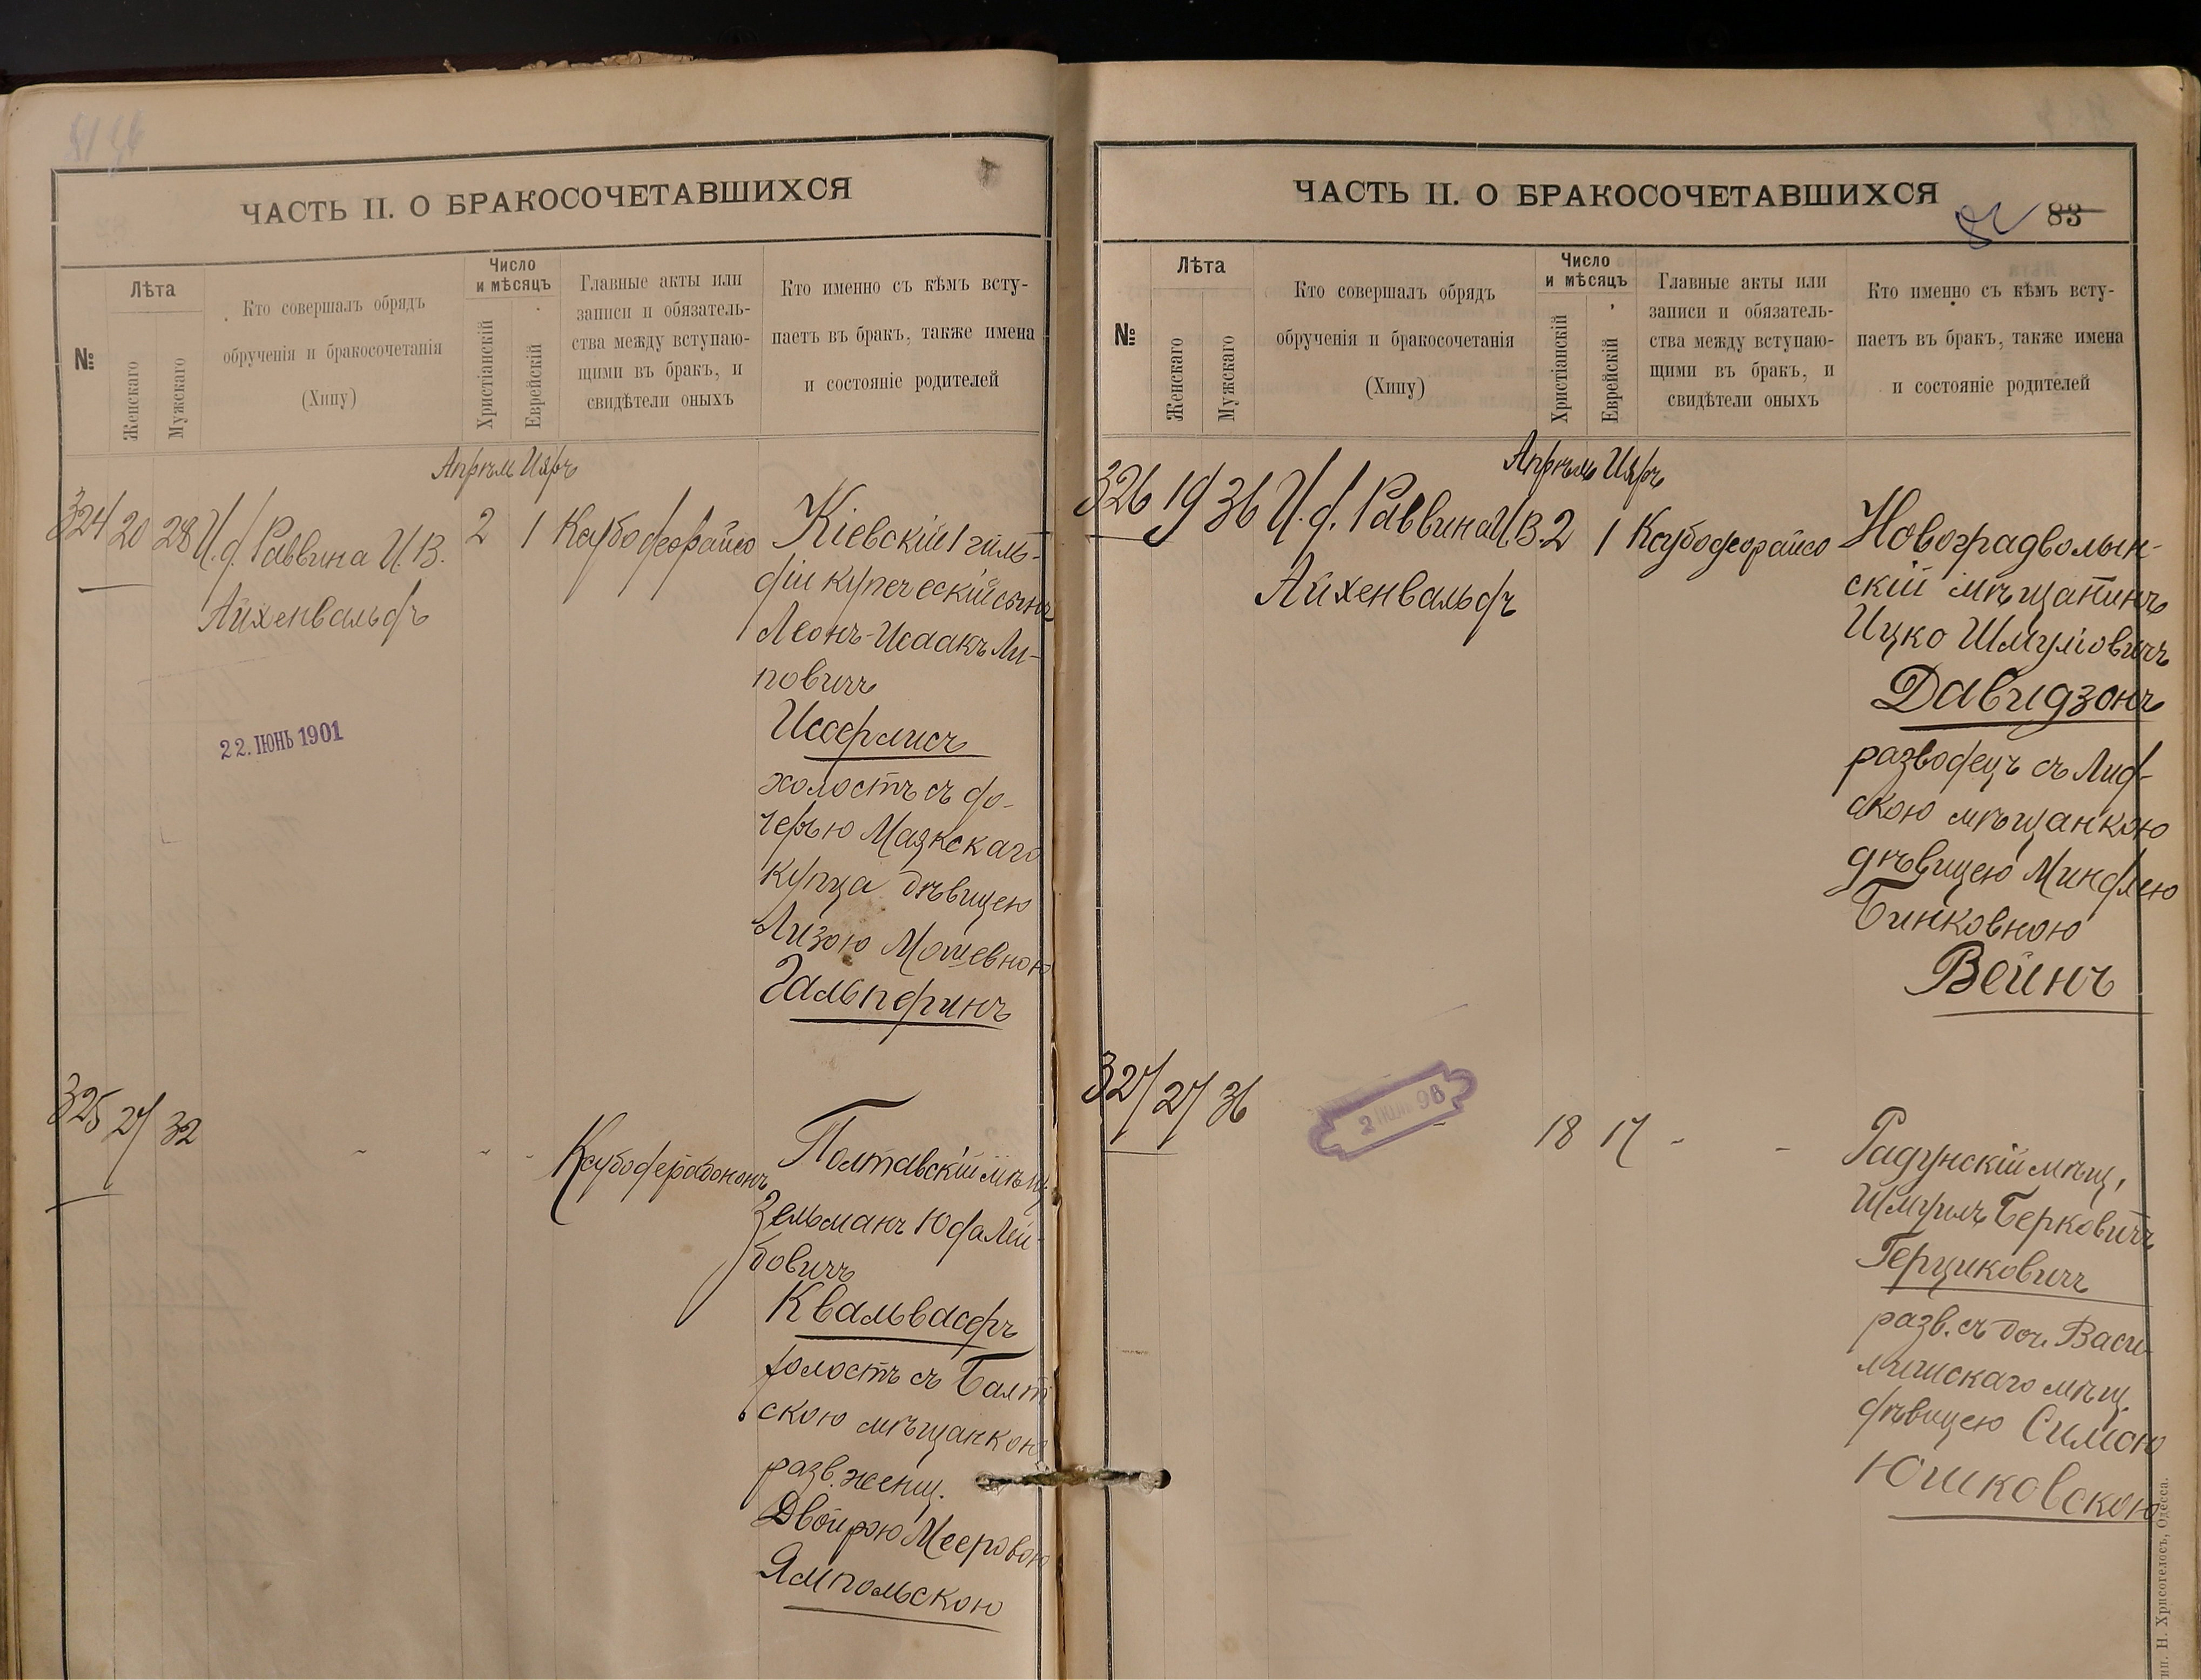 ЧАСТЬ II. О БРАКОСОЧЕТАВШИХСЯ
№
Лѣта
Женскаго
Мужскаго
Кто совершалъ обрядъ
обрученія и бракосочетанія
(Хипу)
Число
и мѣсяцъ
Христіанскій
Еврейскій
Главные акты или
записи и обязатель-
ства между вступаю-
щими въ бракъ, и
свидѣтели оныхъ
Кто именно съ кѣмъ всту-
паетъ въ бракъ, также имена
и состояніе родителей
Апрѣль Ияръ
324 20 28 И. д. Раввина И. В. 2 1
Айхенвальдъ
Кіевскій 1 гиль-
діи купеческій сынъ
Леонъ-Исаакъ Ли-
повичъ
Иссерлисъ
холостъ съ до-
черью Маякскаго
купца дѣвицею
Лизою Мошевною
Гальперинъ
22. ІЮНЬ 1901
325 27 32 - - -
Полтавскій мѣщ.
Зельманъ Юдалей-
бовичъ
Квальвасеръ
холостъ съ Балт
скою мѣщанкою
разв. женщ.
Двойрою Мееровою
Ямпольскою
ЧАСТЬ II. О БРАКОСОЧЕТАВШИХСЯ
83
№
Лѣта
Женскаго
Мужскаго
Кто совершалъ обрядъ
обрученія и бракосочетанія
(Хипу)
Число
и мѣсяцъ
Христіанскій
Еврейскій
Главные акты или
записи и обязатель-
ства между вступаю-
щими въ бракъ, и
свидѣтели оныхъ
Кто именно съ кѣмъ всту-
паетъ въ бракъ, также имена
и состояніе родителей
Апрѣль Ияръ
326 19 36 И. д. Раввина И. В. 2 1
Айхенвальдъ
Новоградволын-
скій мѣщанинъ
Ицко Шмуліовичъ
Давидзонъ
разводецъ съ Лид-
скою мѣщанкою
дѣвицею Миндлею
Бинковною
Вейнъ
327 27 36 - 18 17 - -
2 98
Радунскій мѣщ.
Шмуилъ Берковичъ
Герциковичъ
разв. съ доч. Васи-
лишскаго мѣщ.
дѣвицею Симою
Юшковскою
Тип. Н. Хрисогелосъ, Одесса.